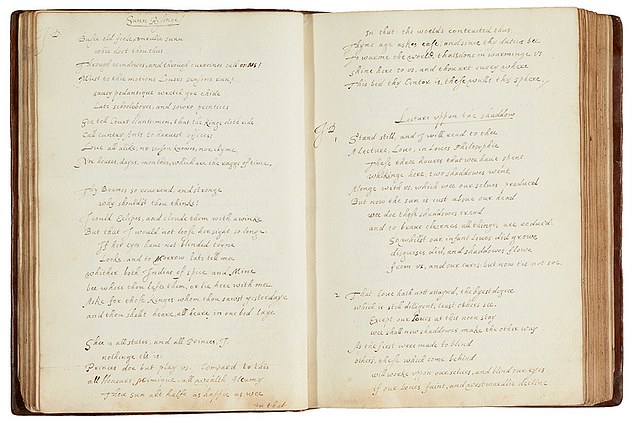 Sunn Risinge
Busie old foole, unrulie sunn
whie dost thou thus
Through windowes, and through curtaines call on us?
Must to thie motions Lovers seasons run?
saucy pedantique wretch goe chide
Late schooleboyes, and sowre prentices
Goe tell Court Huntsmen, that the Kinge doth ride
Call cuntry Ants to harvest offices
Love all alike, no season knowes, nor clyme
Nor houres, dayes, months, which are the ragges of time.
Thy Beames so reverend, and stronge
why shouldst thou thinke?
I could Eclips, and cloude them with a winke
But that I would not loose her sight so long
If her eyes have not blinded thyne
Looke, and to morrow late tell me
whither both Indias of spice and Myne
bee where thou left them, or lie here with mee
Aske for those Kinges whom thou sawst yesterdaye
and thou shalt heare, all heare in one bed laye
Shee is all states, and all Princes, I.
nothinge els is:
Princes doe but play us. Compar'd to this
all Honours, Mimique, all wealth Alcumy.
Thou sun art halfe as happie as wee
In that
In that the world's contracted thus
Thyne age askes ease, and since thy duties bee
To warme the world, thats done in warminge us
shine here to us, and thou art every where
This bed thy Center is, these walls thy sphere.
Lecture uppon the shaddow
J D.
Stand still, and I will read to thee
A Lecture, Love, in Loves Philosophie
These three houres that we have spent
walkinge here, two shaddowes went
Alonge with us, which wee our selves produced
But now the sun is just above our head
wee doe those shaddowes tread
and to brave cleernes all things are reduc'd.
So whilst our infant Loves did growe
disguises did, and shaddowes flowe
from us, and our cares, but now tis not soe.
2 That love hath not attaynd, the hyest degree
which is still diligent, least others see.
Except our Loves at this noon stay
wee shall new shaddowes make the other way
As the first were made to blind
others, these which come behind
will worke upon our selves, and blind our eyes
if our loves faint, and westwardlie decline